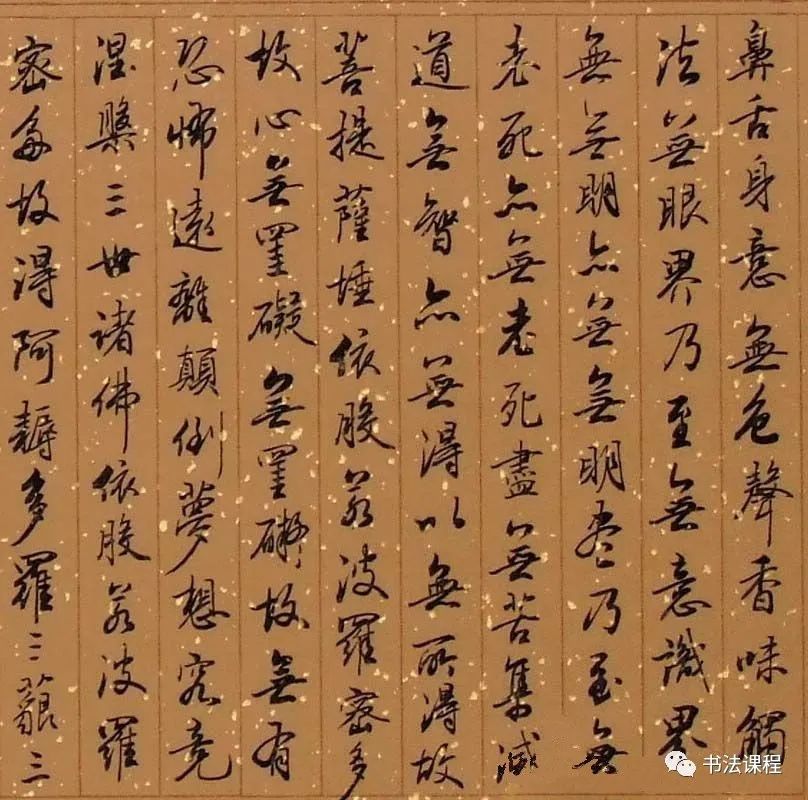 鼻舌身意無色聲香味觸
法無眼界乃至無意識界
無無明亦無無明盡乃至無
老死亦無老死盡無苦集滅
道無智亦無得以無所得故
菩提薩埵依般若波羅密多
故心無罣礙無罣礙故無有
恐怖遠離顛倒夢想究竟
涅槃三世諸佛依般若波羅
密多故得阿耨多羅三藐三
书法课程